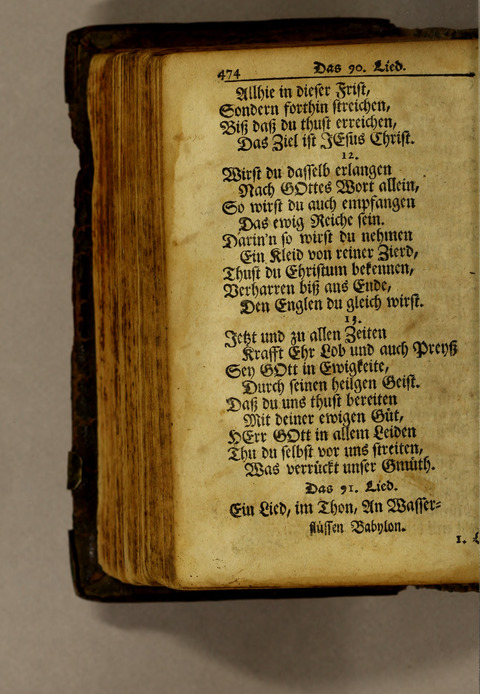 474 Das 90. Lied.
Allhie in dieser Frist,
Sondern forthin streichen,
Biß daß du thust erreichen,
Das Ziel ist JEsus Christ.
12.
Wirst du dasselb erlangen
Nach GOttes Wort allein,
So wirst du auch empfangen
Das ewig Reiche sein.
Darin'n so wirst du nehmen
Ein Kleid von reiner Zierd,
Thust du Christum bekennen,
Verharren biß ans Ende,
Den Englen du gleich wirst.
13.
Jetzt und zu allen Zeiten
Krafft Ehr Lob und auch Preyß
Sey GOtt in Ewigkeite,
Durch seinen heilgen Geist.
Daß du uns thust bereiten
Mit deiner ewigen Güt,
HErr GOtt in allem Leiden
Thu du selbst vor uns streiten,
Was verrückt unser Gmüth.
Das 91. Lied.
Ein Lied, im Thon, An Wasser-
flüssen Babylon.
1.